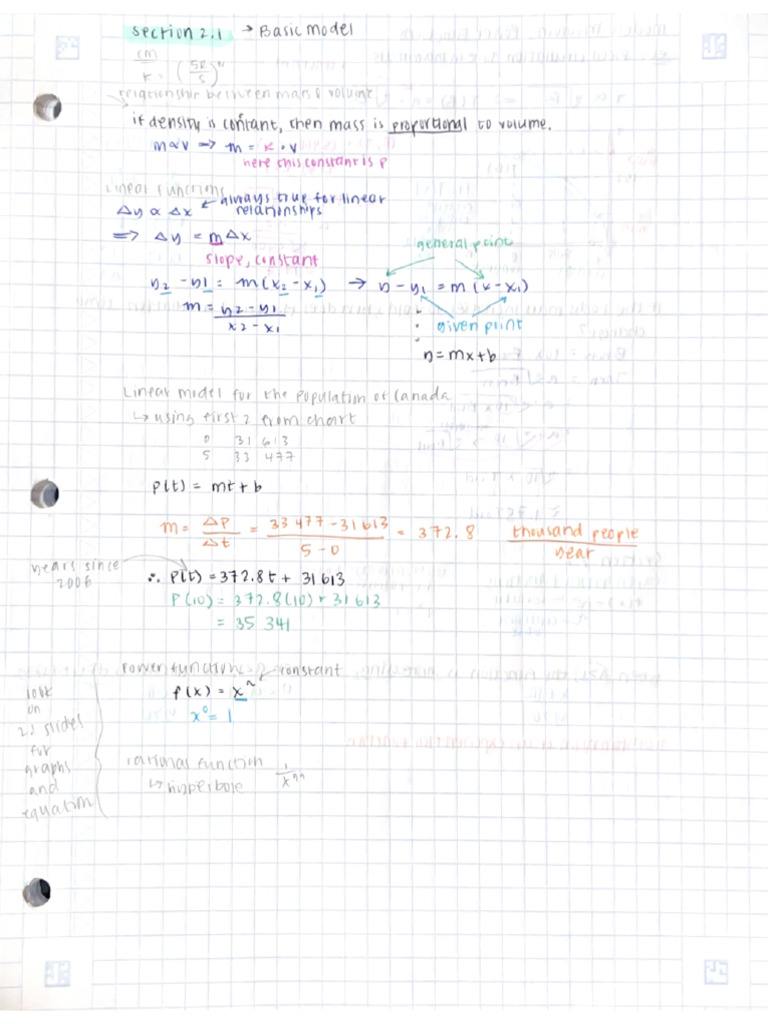 section 2.1 → Basic model
relationship between mass & volume
if density is contant, then mass is proportional to volume.
m ∝ v ⟹ m = k · v
here this constant is ρ
Linear functions
Δy ∝ Δx ← always true for linear relationships
⟹ Δy = mΔx
slope, constant
general point
y₂ - y₁ = m(x₂ - x₁) → y - y₁ = m(x - x₁)
m = y₂ - y₁ / x₂ - x₁
given point
y = mx + b
Linear model for the population of Canada
↳ using first 2 from chart
0 31 613
5 33 477
P(t) = mt + b
m = ΔP/Δt = 33 477 - 31 613 / 5 - 0 = 372.8 thousand people / year
years since 2006
∴ P(t) = 372.8t + 31 613
P(10) = 372.8(10) + 31 613
= 35 341
power function
constant
f(x) = xⁿ
x⁰ = 1
look
on
slides
for
graphs
and
equation
rational function
↳ hyperbole